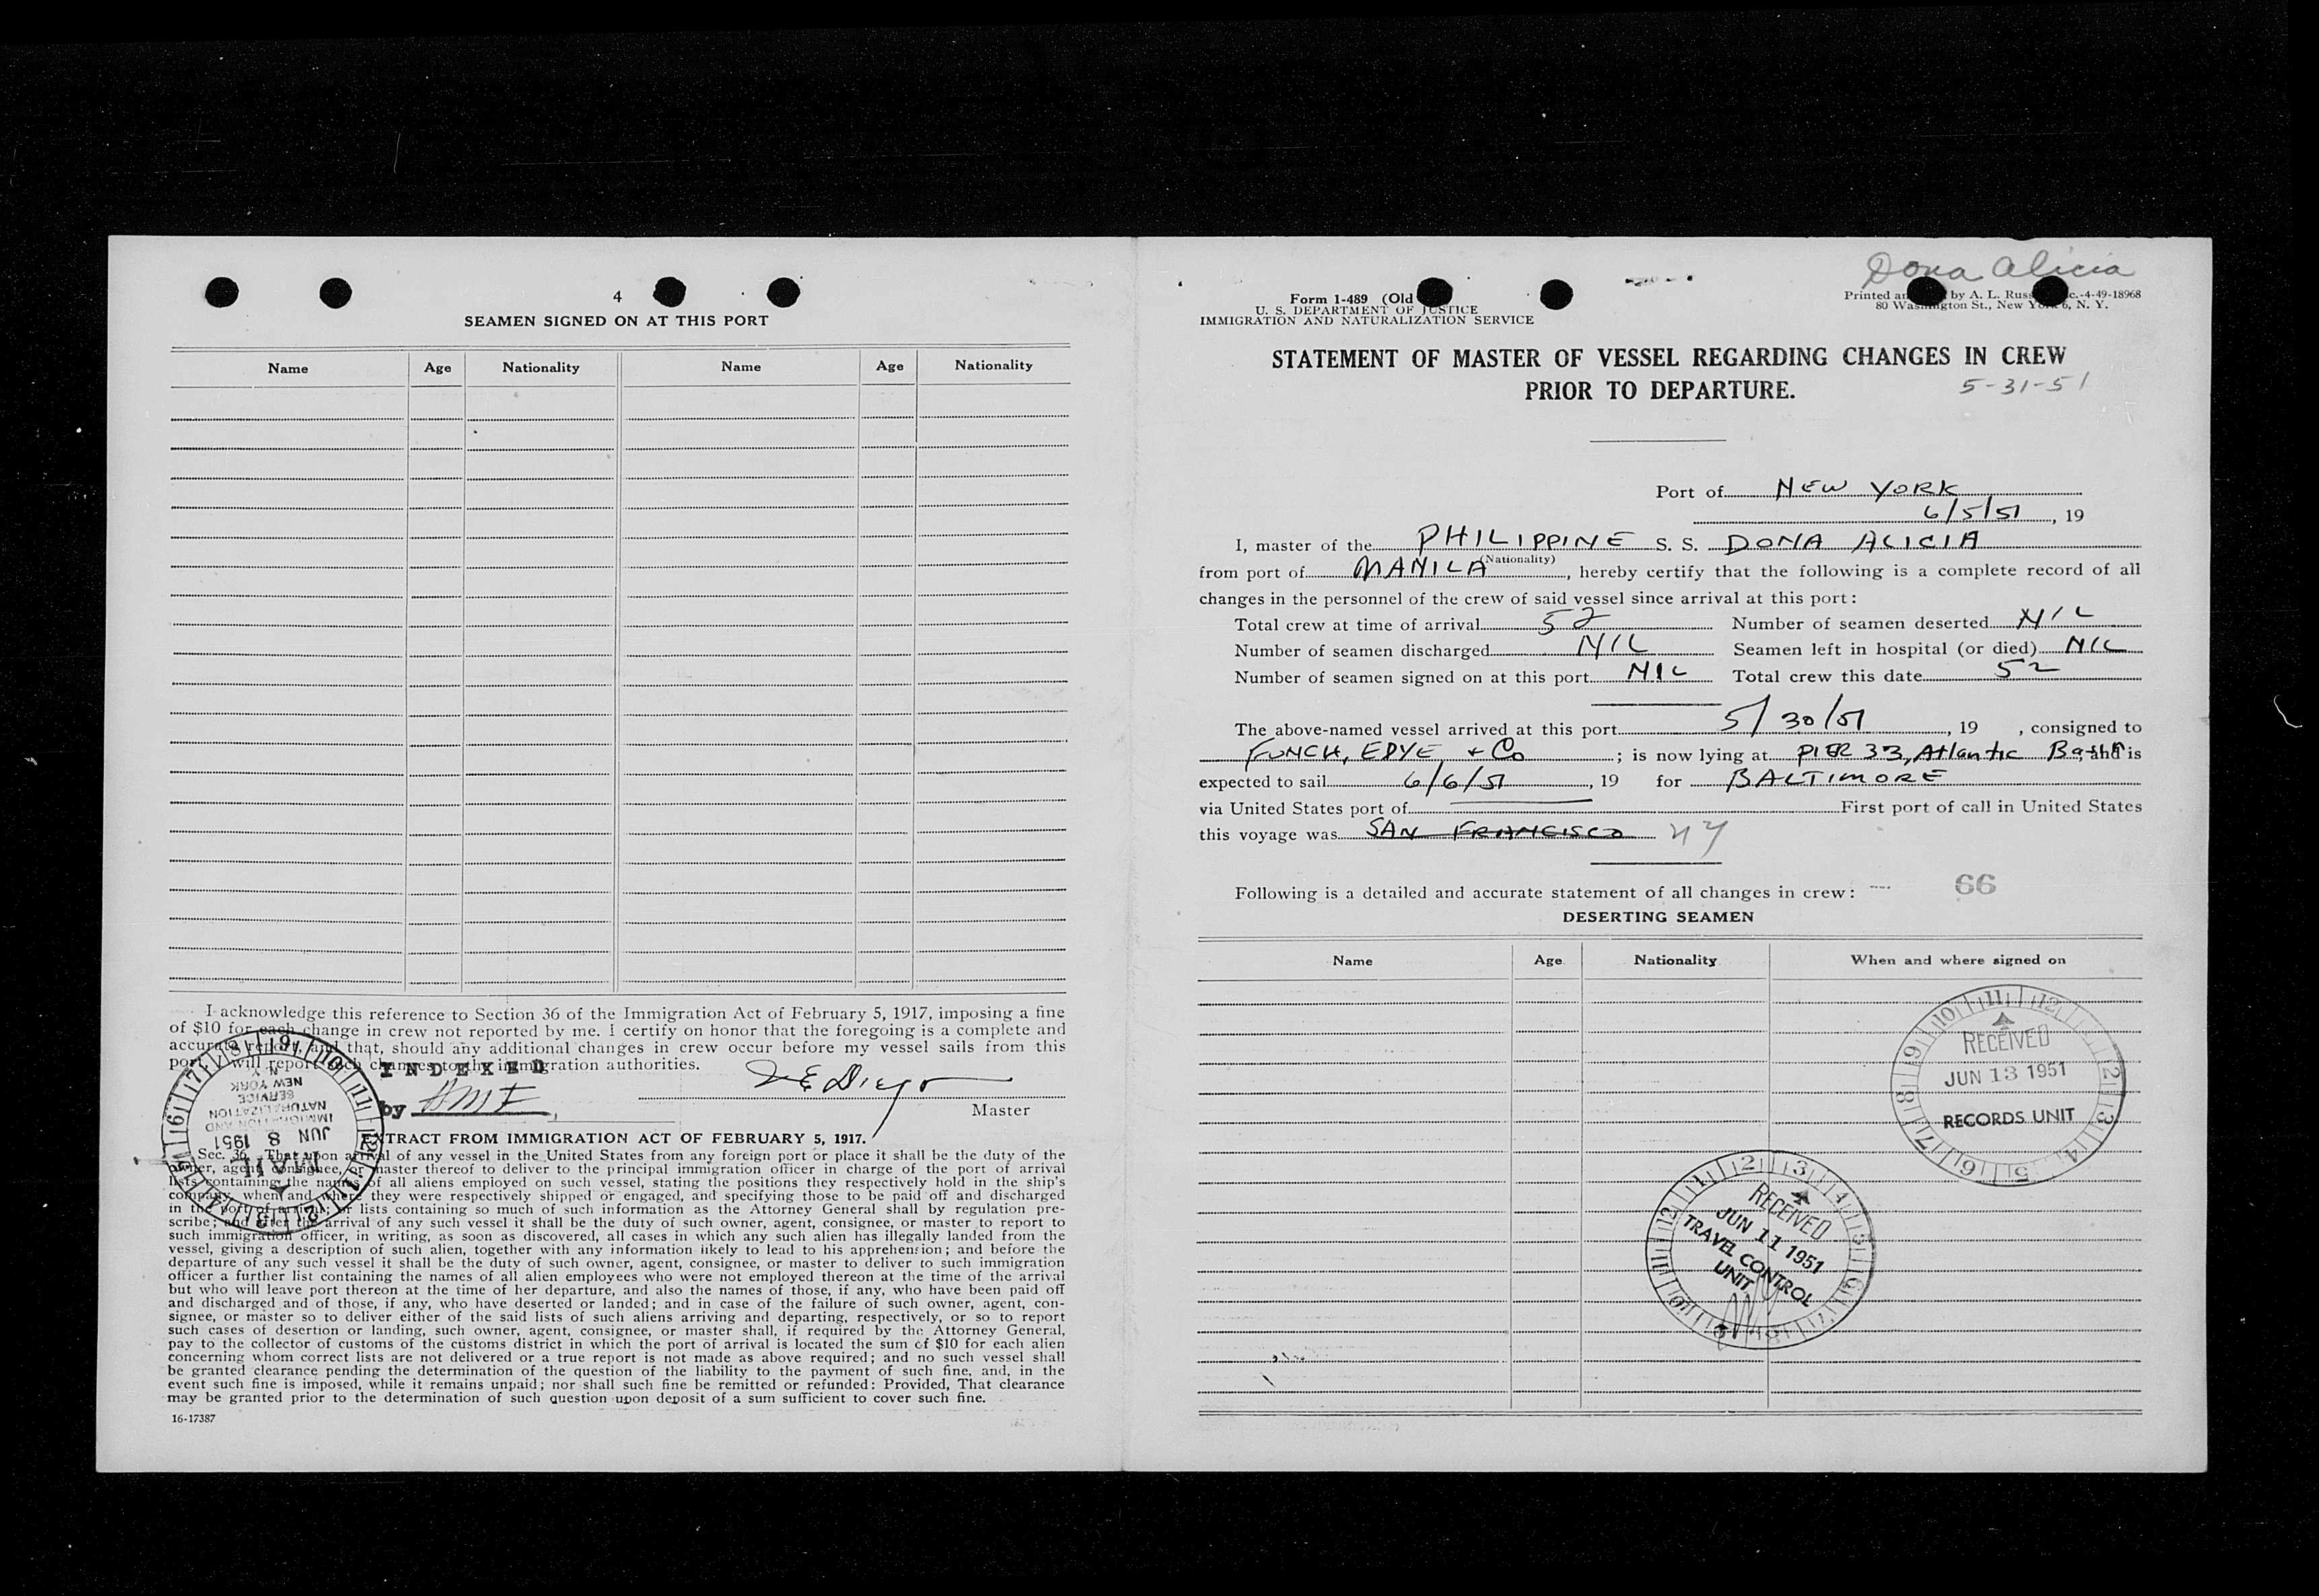 4
SEAMEN SIGNED ON AT THIS PORT
Name Age Nationality Name Age Nationality
I acknowledge this reference to Section 36 of the Immigration Act of February 5, 1917, imposing a fine
of $10 for each change in crew not reported by me. I certify on honor that the foregoing is a complete and
accurate report, and that, should any additional changes in crew occur before my vessel sails from this
port, I will report such changes to the immigration authorities.
INDEXED
by
Master
IMMIGRATION AND
NATURALIZATION
SERVICE
NEW YORK
N Y
JUN 8 1951
MAIL
EXTRACT FROM IMMIGRATION ACT OF FEBRUARY 5, 1917.
Sec. 36. That upon arrival of any vessel in the United States from any foreign port or place it shall be the duty of the
owner, agent, consignee, or master thereof to deliver to the principal immigration officer in charge of the port of arrival
lists containing the names of all aliens employed on such vessel, stating the positions they respectively hold in the ship's
company, when and where they were respectively shipped or engaged, and specifying those to be paid off and discharged
in the port of arrival; or lists containing so much of such information as the Attorney General shall by regulation pre-
scribe; and after the arrival of any such vessel it shall be the duty of such owner, agent, consignee, or master to report to
such immigration officer, in writing, as soon as discovered, all cases in which any such alien has illegally landed from the
vessel, giving a description of such alien, together with any information likely to lead to his apprehension; and before the
departure of any such vessel it shall be the duty of such owner, agent, consignee, or master to deliver to such immigration
officer a further list containing the names of all alien employees who were not employed thereon at the time of the arrival
but who will leave port thereon at the time of her departure, and also the names of those, if any, who have been paid off
and discharged and of those, if any, who have deserted or landed; and in case of the failure of such owner, agent, con-
signee, or master so to deliver either of the said lists of such aliens arriving and departing, respectively, or so to report
such cases of desertion or landing, such owner, agent, consignee, or master shall, if required by the Attorney General,
pay to the collector of customs of the customs district in which the port of arrival is located the sum of $10 for each alien
concerning whom correct lists are not delivered or a true report is not made as above required; and no such vessel shall
be granted clearance pending the determination of the question of the liability to the payment of such fine, and, in the
event such fine is imposed, while it remains unpaid; nor shall such fine be remitted or refunded: Provided, That clearance
may be granted prior to the determination of such question upon deposit of a sum sufficient to cover such fine.
16-17387
Dona Alicia
Form 1-489 (Old
U. S. DEPARTMENT OF JUSTICE
IMMIGRATION AND NATURALIZATION SERVICE
Printed by A. L. Russ c.-4-49-18968
80 Washington St., New York 6, N. Y.
STATEMENT OF MASTER OF VESSEL REGARDING CHANGES IN CREW
PRIOR TO DEPARTURE.
5-31-51
Port of NEW YORK
6/5/51, 19
I, master of the PHILIPPINE S. S. DONA ALICIA
(Nationality)
from port of MANILA, hereby certify that the following is a complete record of all
changes in the personnel of the crew of said vessel since arrival at this port:
Total crew at time of arrival 52 Number of seamen deserted NIL
Number of seamen discharged NIL Seamen left in hospital (or died) NIL
Number of seamen signed on at this port NIL Total crew this date 52
The above-named vessel arrived at this port 5/30/51, 19 , consigned to
FUNCH, EDYE & Co ; is now lying at PIER 33, Atlantic Basin, and is
expected to sail 6/6/51, 19 for BALTIMORE
via United States port of First port of call in United States
this voyage was SAN FRANCISCO NY
Following is a detailed and accurate statement of all changes in crew:
66
DESERTING SEAMEN
Name Age Nationality When and where signed on
RECEIVED
JUN 13 1951
RECORDS UNIT
RECEIVED
JUN 11 1951
TRAVEL CONTROL
UNIT